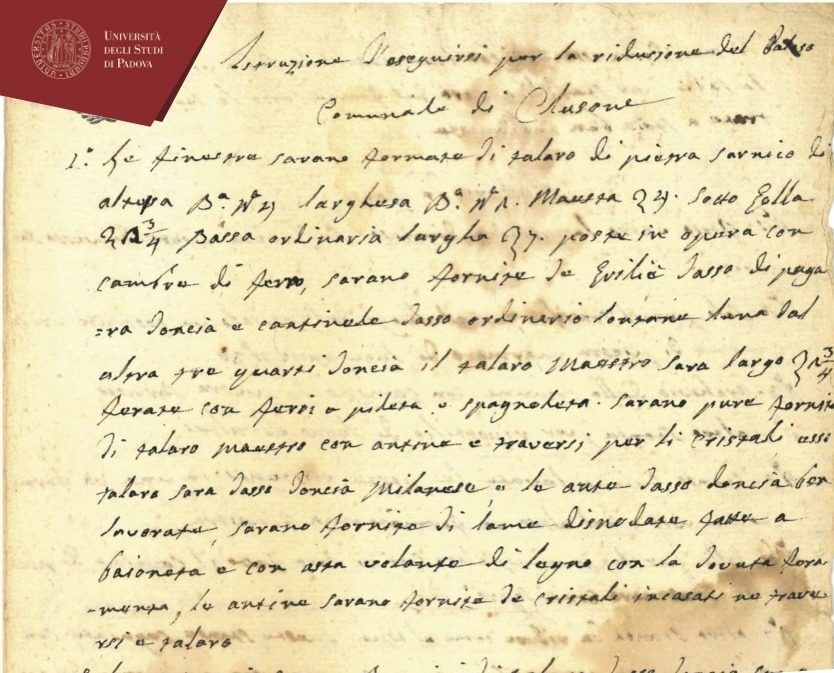 UNIVERSITÀ
DEGLI STUDI
DI PADOVA
Istruzione d'eseguirsi per la riduzione del
Comunale di Clusone
1.° Le finestre sarano formate di talaro di pietra sarnico di
altesa B.ª N.° larghesa B.ª N.° Maesta sotto
3/4 Bassa ordinaria largha 7. poste in opera con
cambre di ferro, sarano fornite de dasso di paga
=ra doncia e cantinele dasso ordinario lontane luna dal
altra tre quarti doncia il talaro Maestro sara largo 3/4
ferate con feroi a pileta e spagnoleta. sarano pure fornite
di talaro maestro con antine e traversi per li cristali esso
talaro sara dasso doncia Milanese, e le ante dasso doncia ben
lavorate, sarano fornite di lame disnodate fatte a
baioneta e con asta volante di legno con la dovuta fera
-menta, le antine sarano fornite de cristali incasati ne trave
rsi e talaro